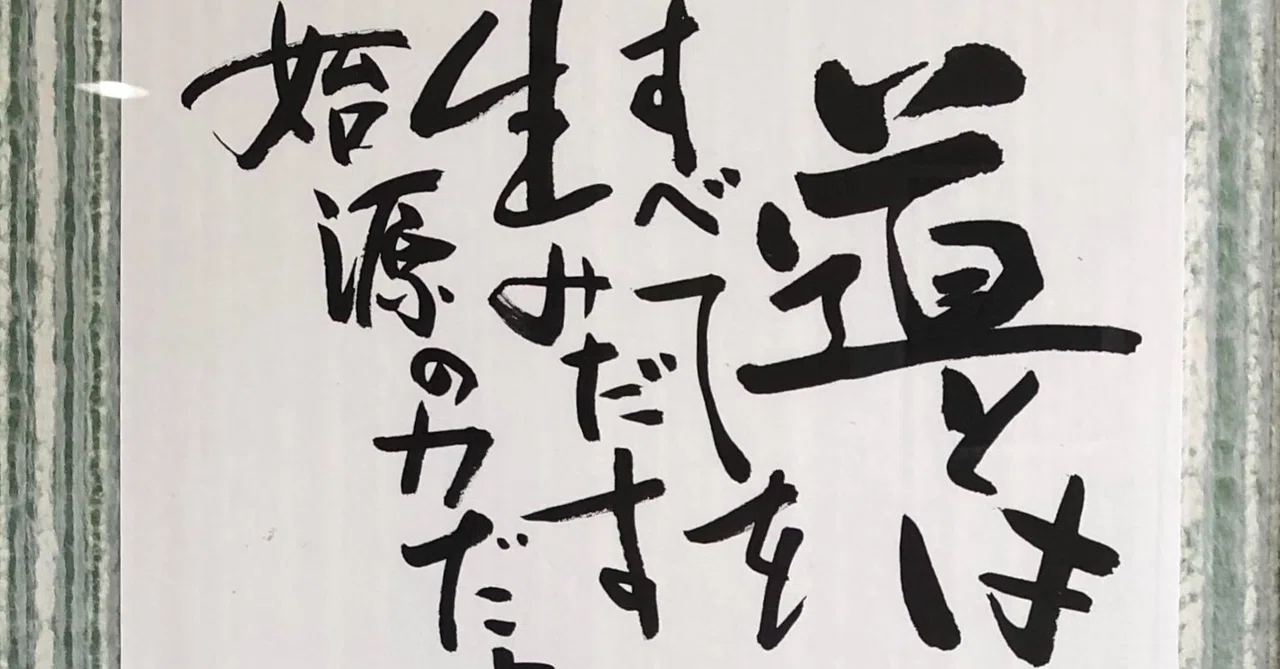 道とは
すべてを
生みだす
始源の力だ